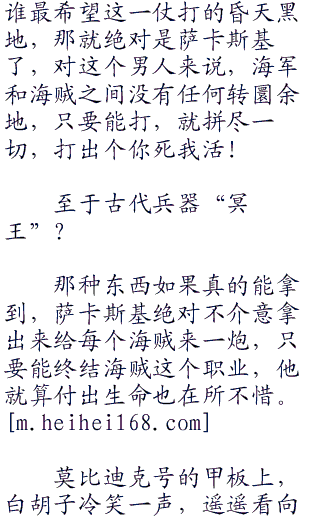 谁最希望这一仗打的昏天黑
地，那就绝对是萨卡斯基
了，对这个男人来说，海军
和海贼之间没有任何转圜余
地，只要能打，就拼尽一
切，打出个你死我活！
至于古代兵器“冥
王”？
那种东西如果真的能拿
到，萨卡斯基绝对不介意拿
出来给每个海贼来一炮，只
要能终结海贼这个职业，他
就算付出生命也在所不惜。
[m.heihei168.com]
莫比迪克号的甲板上，
白胡子冷笑一声，遥遥看向